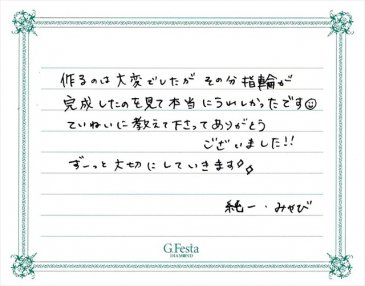 作るのは大変でしたが その分 指輪が
完成したのを見て本当にうれしかったです☺
ていねいに教えて下さってありがとう
ございました!!
ずーっと大切にしていきます
純一・みやび
G.Festa
DIAMOND